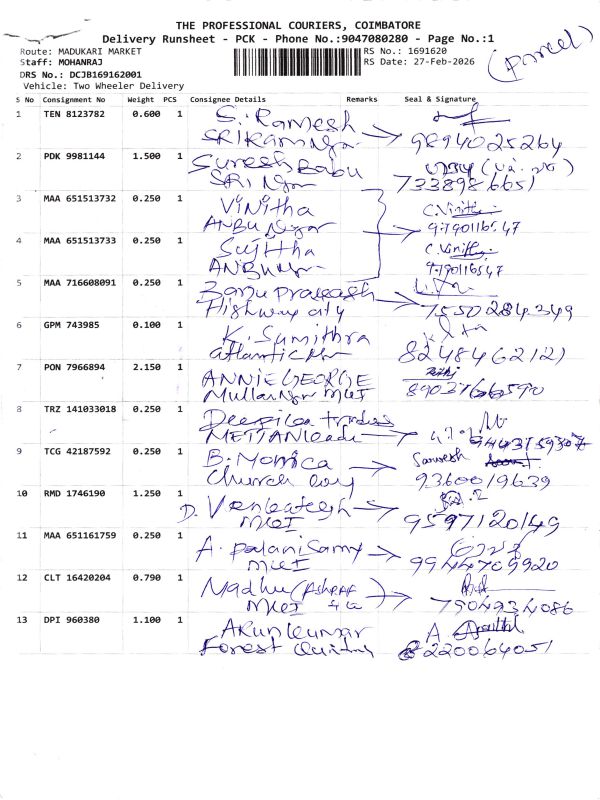 THE PROFESSIONAL COURIERS, COIMBATORE
Delivery Runsheet - PCK - Phone No.:9047080280 - Page No.:1
Route: MADUKARI MARKET
RS No.: 1691620
(Parcel)
Staff: MOHANRAJ
RS Date: 27-Feb-2026
DRS No.: DCJB169162001
Vehicle: Two Wheeler Delivery
S No Consignment No Weight PCS Consignee Details Remarks Seal & Signature
1 TEN 8123782 0.600 1 S. Ramesh
9894025264
2 PDK 9981144 1.500 1 Suresh Babu
SRI Ngr 7338986651
3 MAA 651513732 0.250 1 Vinitha C. Vinitha
ANBU Ngr 9790116547
4 MAA 651513733 0.250 1 Sujitha C. Vinitha
ANBU Ngr 9790116547
5 MAA 716608091 0.250 1 Banu Prakash
Highway city 7550284349
6 GPM 743985 0.100 1 K. Sumithra
atlantic 8248462121
7 PON 7966894 2.150 1 ANNIE GEORGE
Mullai Ngr MKT
8 TRZ 141033018 0.250 1 Deepika traders
9443759307
9 TCG 42187592 0.250 1 B. Monica Sarvesh
Church 9360019639
10 RMD 1746190 1.250 1 D. Venkatesh
MKT 9597120149
11 MAA 651161759 0.250 1 A. Palanisamy
MKT 9944709920
12 CLT 16420204 0.790 1 Madhu (Ashraf
MKT 7904934086
13 DPI 960380 1.100 1 Arunkumar A.
Forest 8220064051